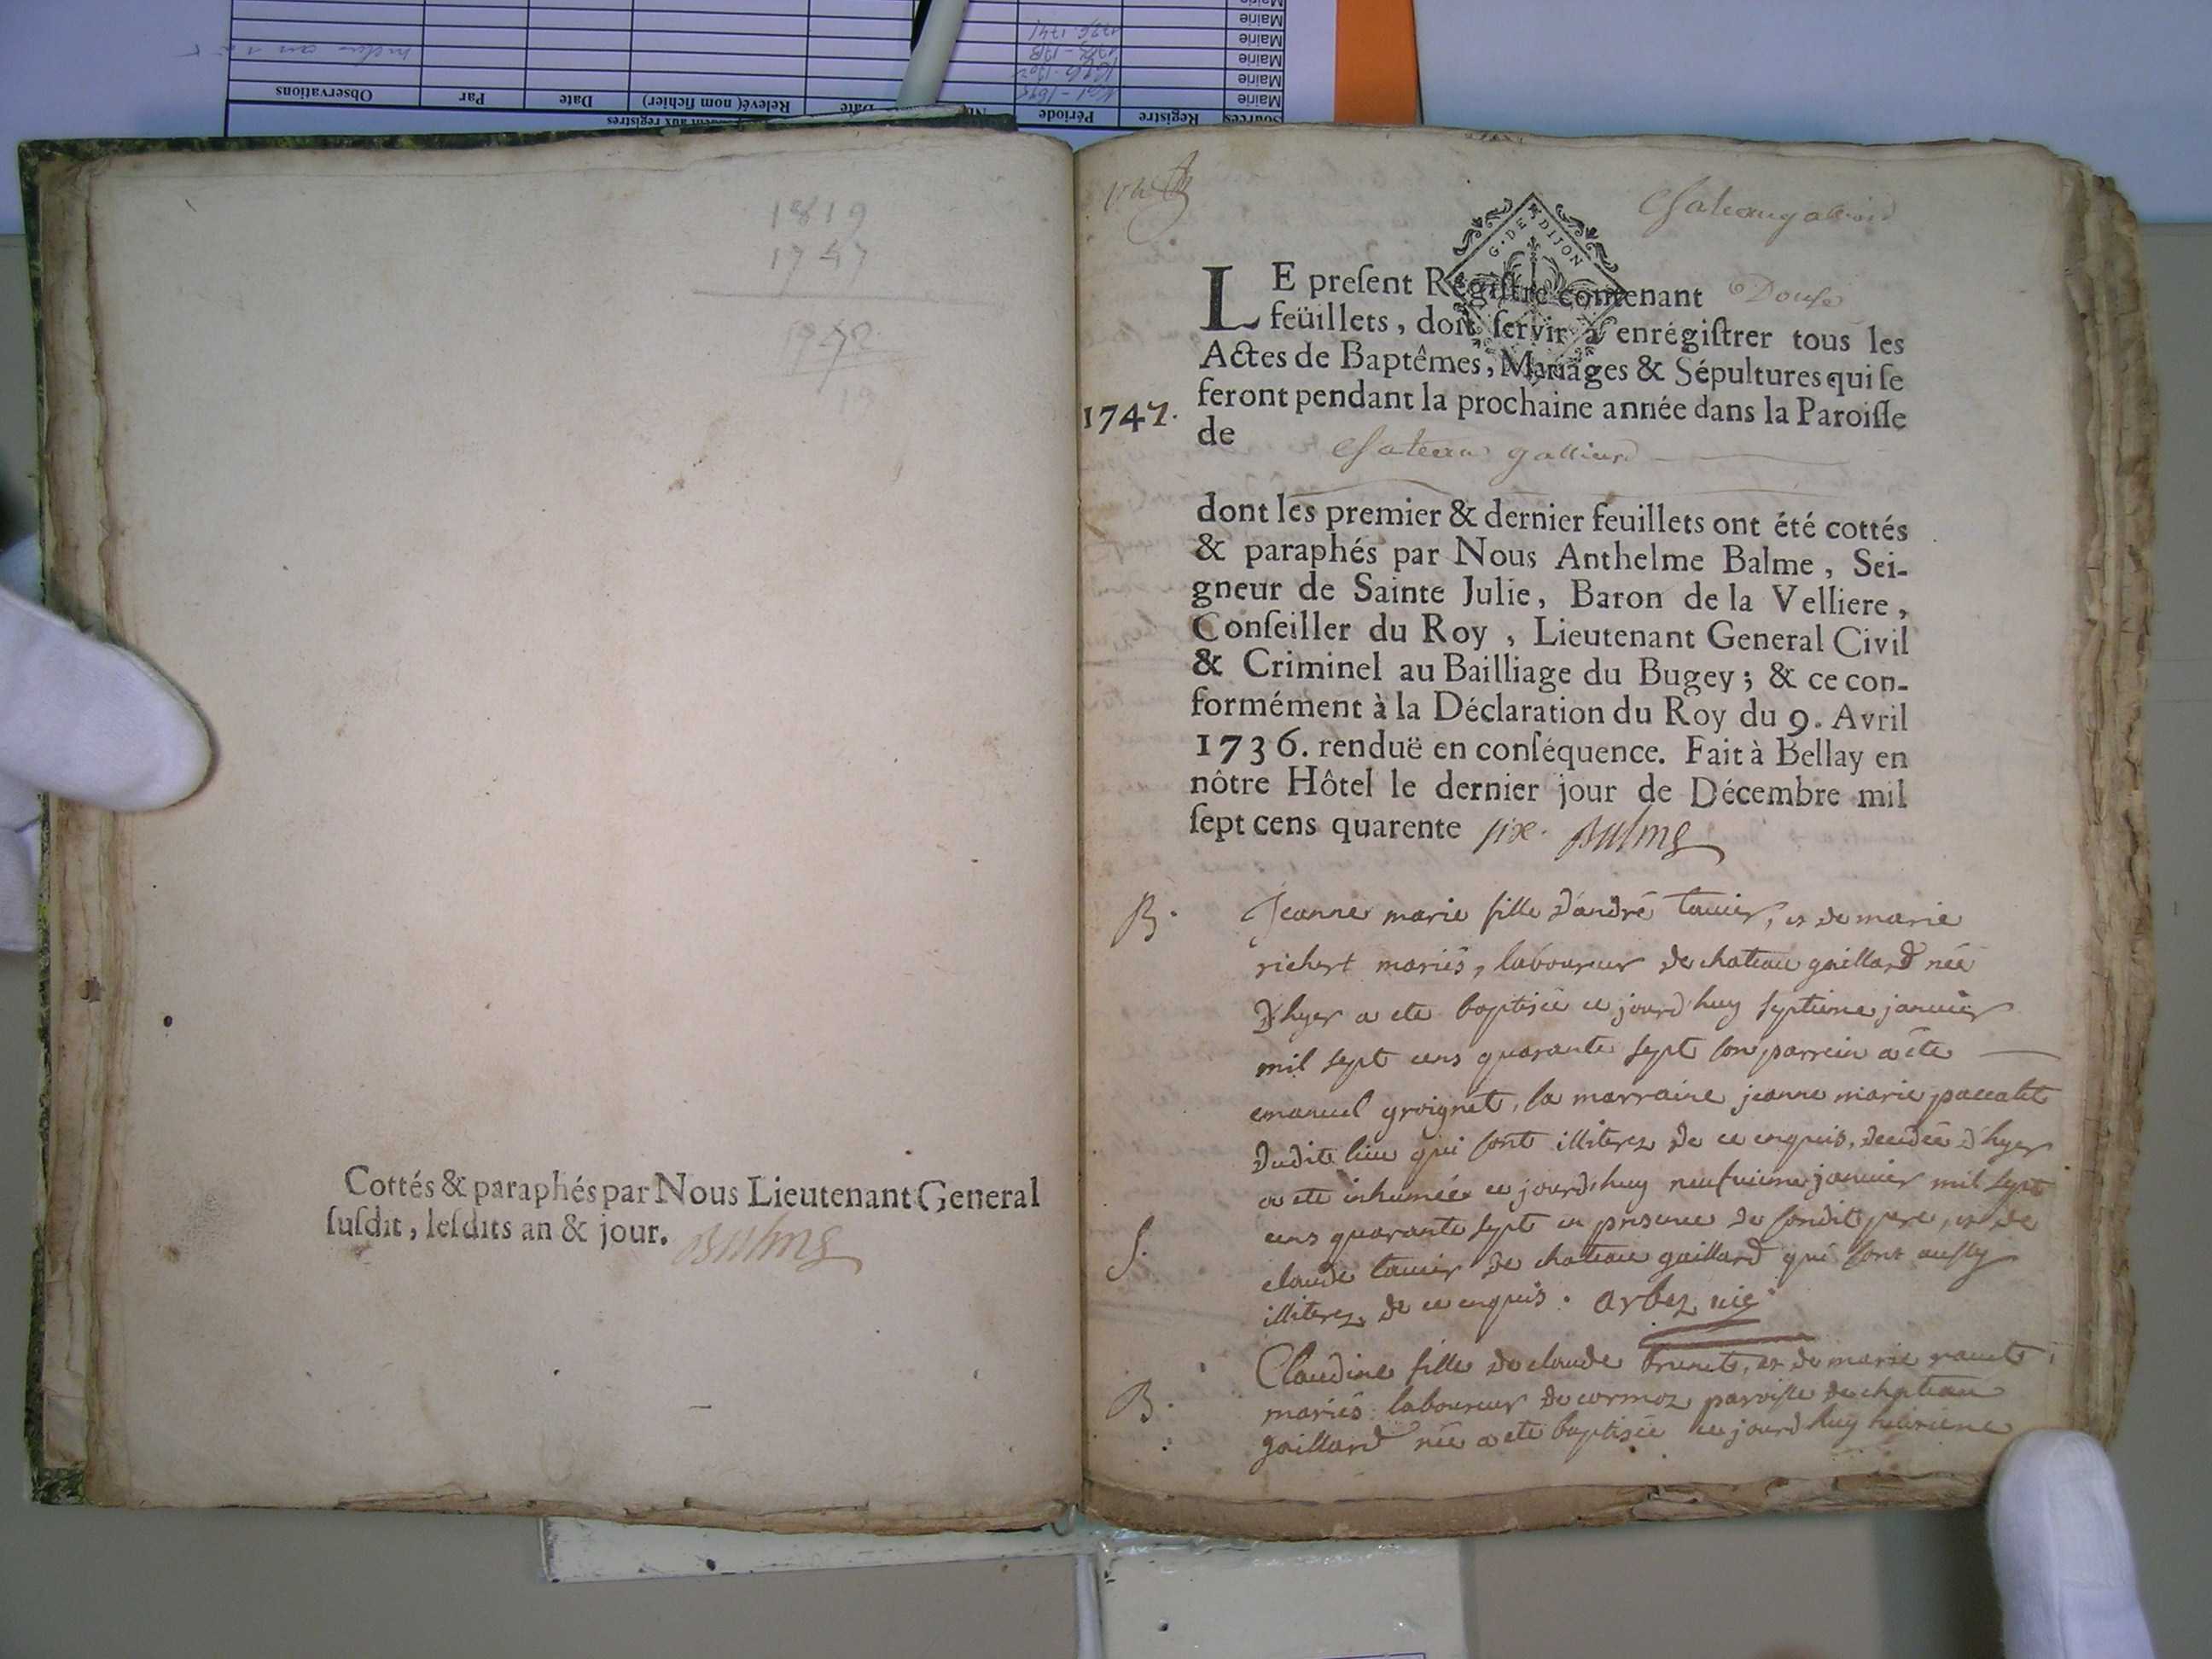 Sources Registre Période Date Relevé( nom fichier) Date Par Observations
Mairie 1726-1741
Mairie
Mairie
Mairie
1819
1747
Cottés & paraphés par Nous Lieutenant General
ſuſdit, leſdits an & jour. Balme
G · DE DIJON
LE preſent Régiſtre contenant Douſe
feüillets, doit ſervir à enrégiſtrer tous les
Actes de Baptêmes, Mariages & Sépultures qui ſe
feront pendant la prochaine année dans la Paroiſſe
1747.
de
Chateau galliard
dont les premier & dernier feuillets ont été cottés
& paraphés par Nous Anthelme Balme, Sei-
gneur de Sainte Julie, Baron de la Velliere,
Conſeiller du Roy, Lieutenant General Civil
& Criminel au Bailliage du Bugey; & ce con-
formément à la Déclaration du Roy du 9. Avril
1736. renduë en conſéquence. Fait à Bellay en
nôtre Hôtel le dernier jour de Décembre mil
ſept cens quarente six. Balme
B. Jeanne marie fille d'andré tavier, et de marie
richert mariés, laboureur de chateau gaillard née
d'hyer a ete baptisée ce jourd'huy septieme janvier
mil sept cens quarante sept son parrein a été
emanuel groignet, sa marraine jeanne marie paccalet
dudit lieu qui sont illiterez de ce enquis, decedée d'hyer
a ete inhumée ce jourd'huy neufvieme janvier mil sept
cens quarante sept en presence de sondit pere, et de
S. claude tavier de chateau gaillard qui sont aussy
illiterez de ce enquis. arbez vic
Claudine fille de claude brunet, et de marie
B. mariés laboureur de cormoz paroisse de chateau
gaillard née a ete baptisée ce jourd'huy huitieme